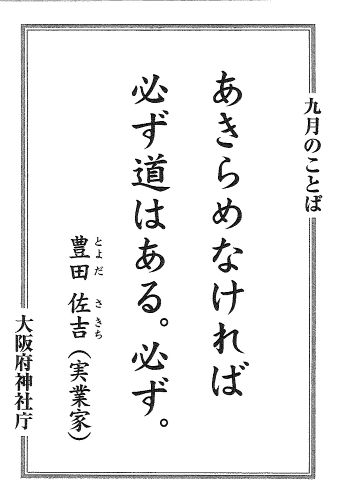 九月のことば
あきらめなければ
必ず道はある。必ず。
とよだ さきち
豊田 佐吉(実業家)
大阪府神社庁